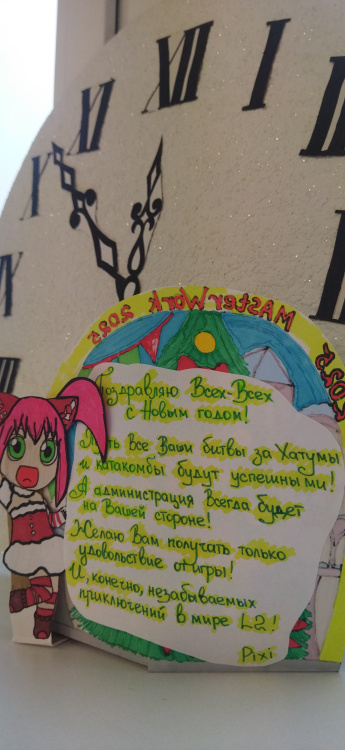 XII
I
XI
X
MAsterWork 2025
Поздравляю Всех-Всех
с Новым годом!
Пусть Все Ваши битвы за Хатумы
и катакомбы будут успешными!
А администрация Всегда будет
на Вашей стороне!
Желаю Вам получать только
удовольствие от игры!
И, конечно, незабываемых
приключений в мире L2!
Pixi